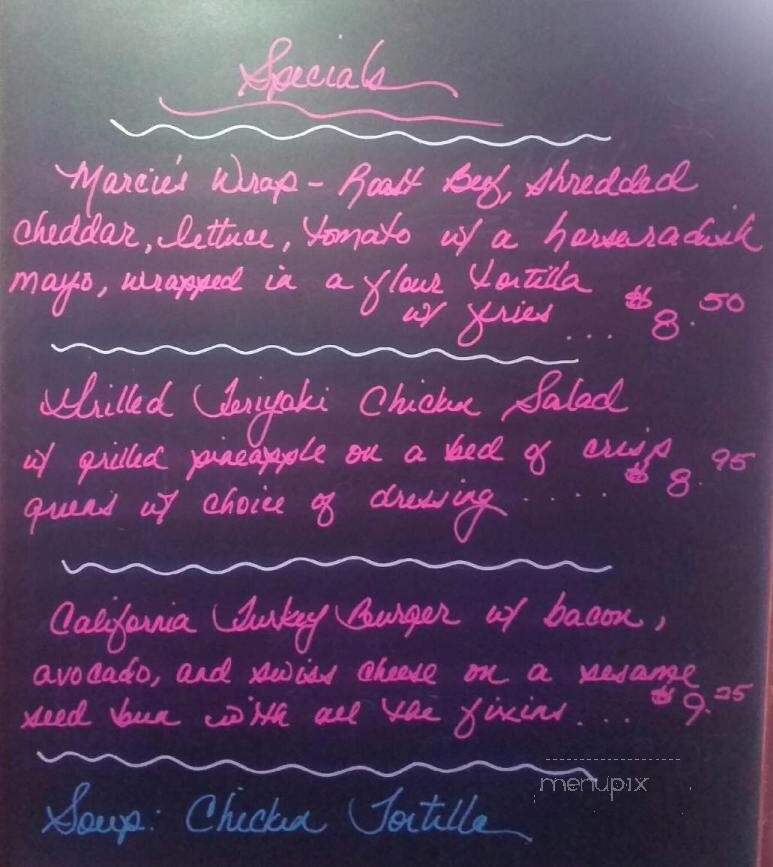 Specials
Marcie's Wrap - Roast Beef, shredded
cheddar, lettuce, tomato w/ a horseradish
mayo, wrapped in a flour tortilla
w/ fries ... $8.50
Grilled Teriyaki Chicken Salad
w/ grilled pineapple on a bed of crisp
greens w/ choice of dressing ...... $8.95
California Turkey Burger w/ bacon,
avocado, and swiss cheese on a sesame
seed bun with all the fixins .... $9.25
Soup: Chicken Tortilla
menupix